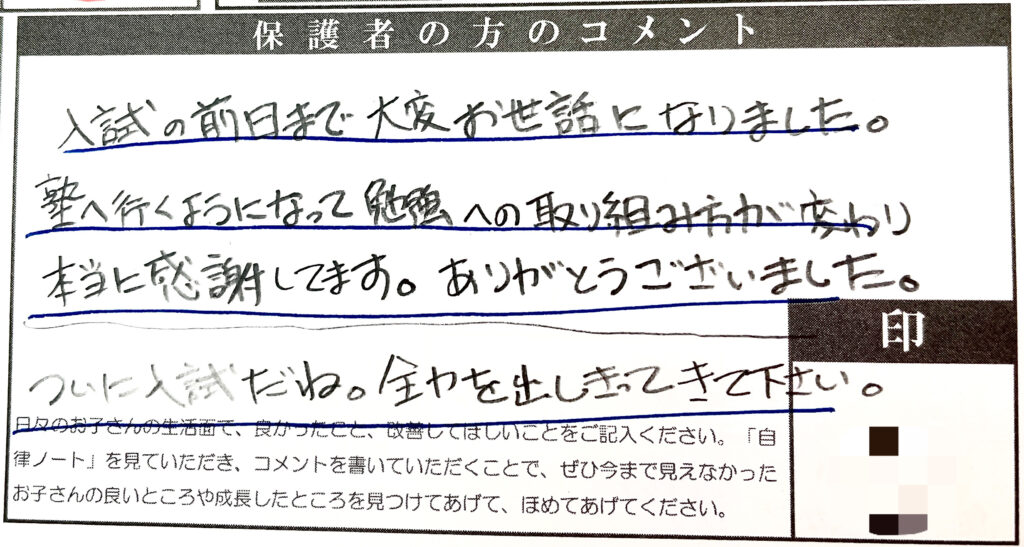 保護者の方のコメント
入試の前日まで大変お世話になりました。
塾へ行くようになって勉強への取り組み方が変わり
本当に感謝してます。ありがとうございました。
印
ついに入試だね。全力を出しきってきて下さい。
日々のお子さんの生活面で、良かったこと、改善してほしいことをご記入ください。「自
律ノート」を見ていただき、コメントを書いていただくことで、ぜひ今まで見えなかった
お子さんの良いところや成長したところを見つけてあげて、ほめてあげてください。